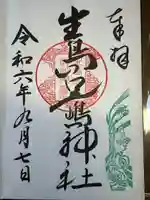 奉拝
生島足嶋神社
令和六年九月七日